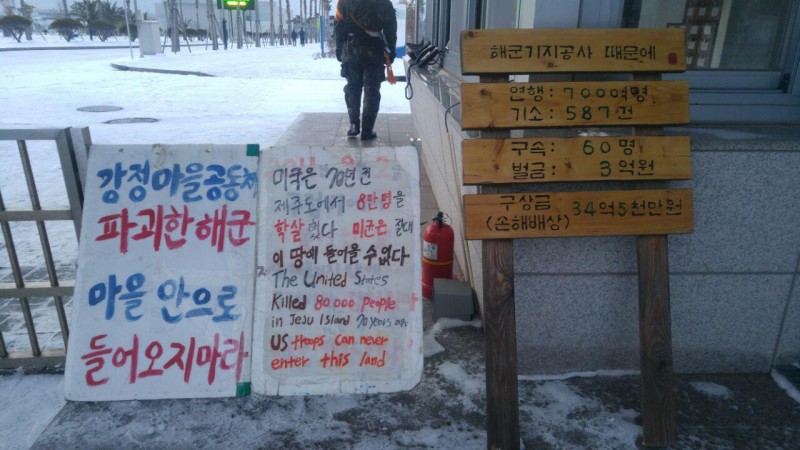 강정마을공동체
파괴한해군
마을 안으로
들어오지마라
미국은 70년 전
제주도에서 8만명을
학살 했다 미군은 절대
이 땅에 들어올 수 없다
The United States
Killed 80000 people
in Jeju Island 70 years ago
US troops can never
enter this land
해군기지공사 때문에
연행: 700여명
기소: 587건
구속: 60명
벌금: 3억원
구상금
(손해배상) 34억5천만원